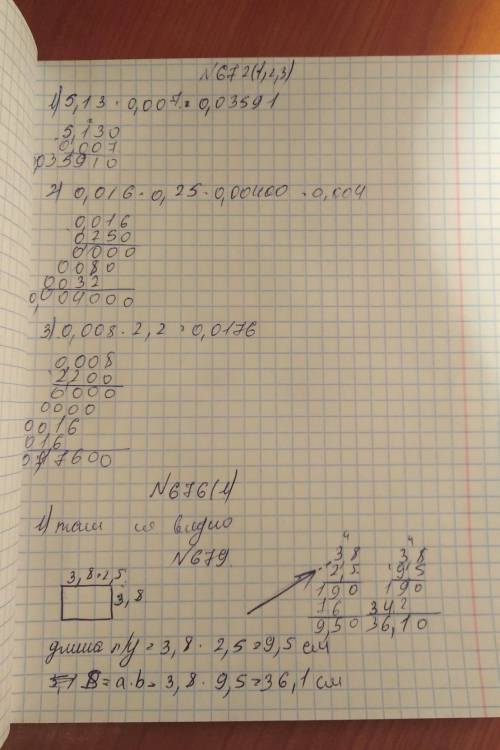 N672(1,2,3)
1) 5,13 · 0,007 = 0,03591
5,130
0,007
035910
2) 0,016 · 0,25 = 0,00400 = 0,004
0,016
0,250
0000
0080
0032
0,004000
3) 0,008 · 2,2 = 0,0176
0,008
2,200
0000
0000
0016
016
0,017600
N676(1)
1)
видно
N679
3,8 · 2,5
3,8
4
3,8
2,5
190
76
9,50
4
3,8
9,5
190
342
36,10
длина = 3,8 · 2,5 = 9,5 см
S = a·b = 3,8 · 9,5 = 36,1 см